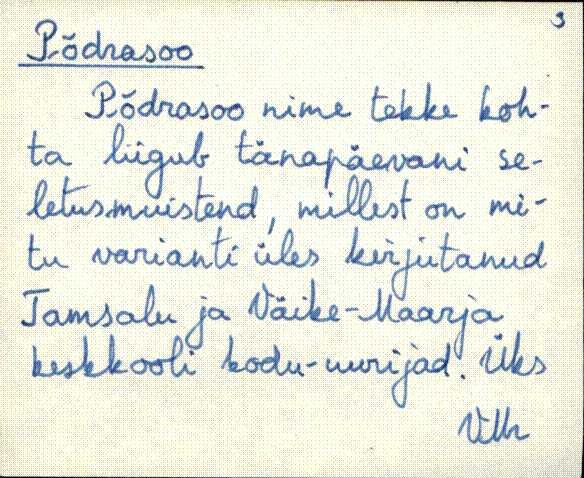 3
Põdrasoo
Põdrasoo nime tekke koh-
ta liigub tänapäevani se-
letusmuistend, millest on mi-
tu varianti üles kirjutanud
Tamsalu ja Väike-Maarja
keskkooli kodu-uurijad. Üks
VMr